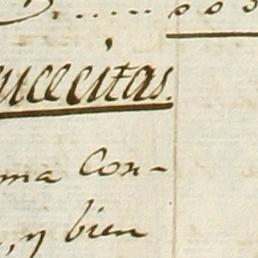 ucecitas.
ma Con-
, y bien